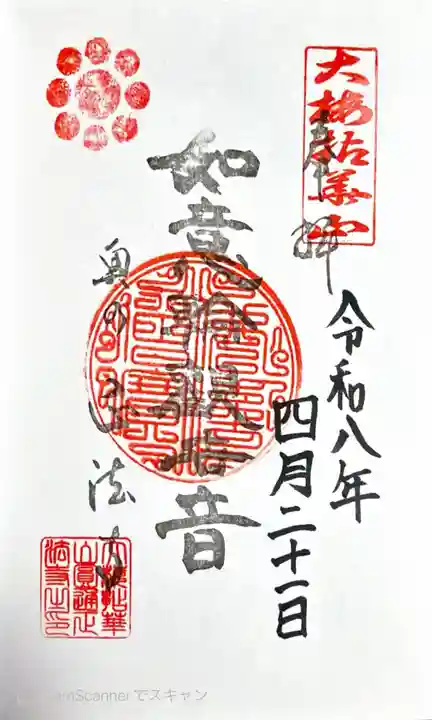 大梅拈華山
奉拝
令和八年
四月二十一日
如意輪観音
奥の正法寺
大梅拈華
山圓通正
法寺之印
amScanner でスキャン